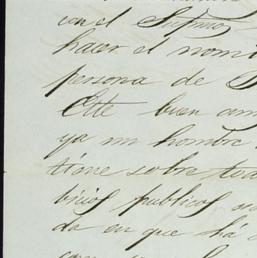 con el
hacer el nomi
persona de
Este buen am
ya un hombre
tiene sobre tod
vicios publicos
da en que há